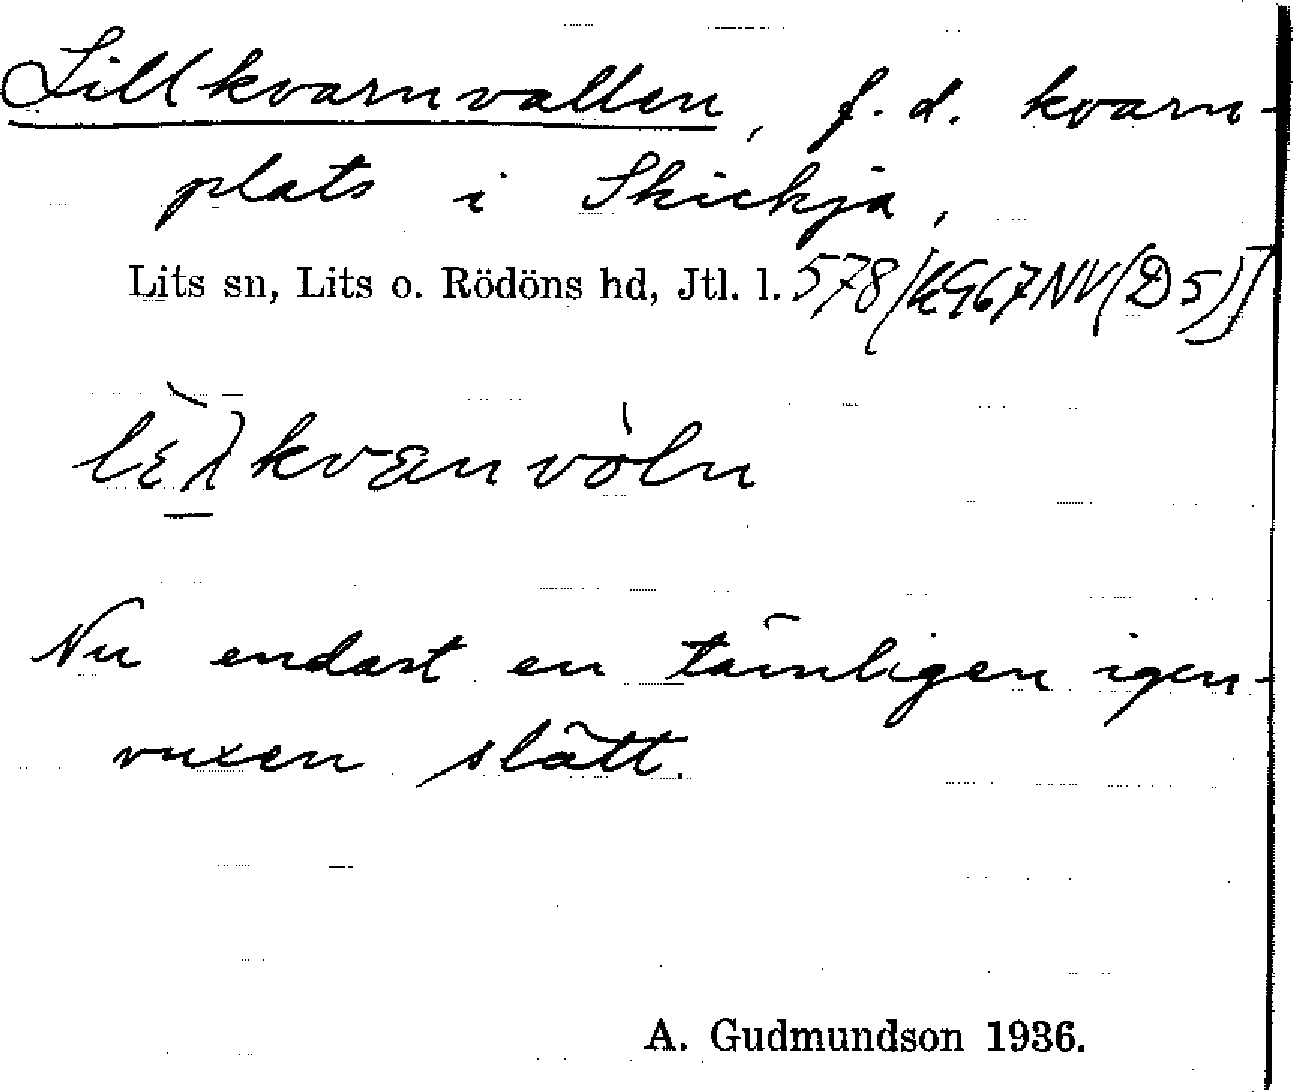 Lillkvarnvallen, f.d. kvarn-
plats i Skickja,
Lits sn, Lits o. Rödöns hd, Jtl. l. 578
Nu endast en tämligen igen-
vuxen slått.
A. Gudmundson 1936.